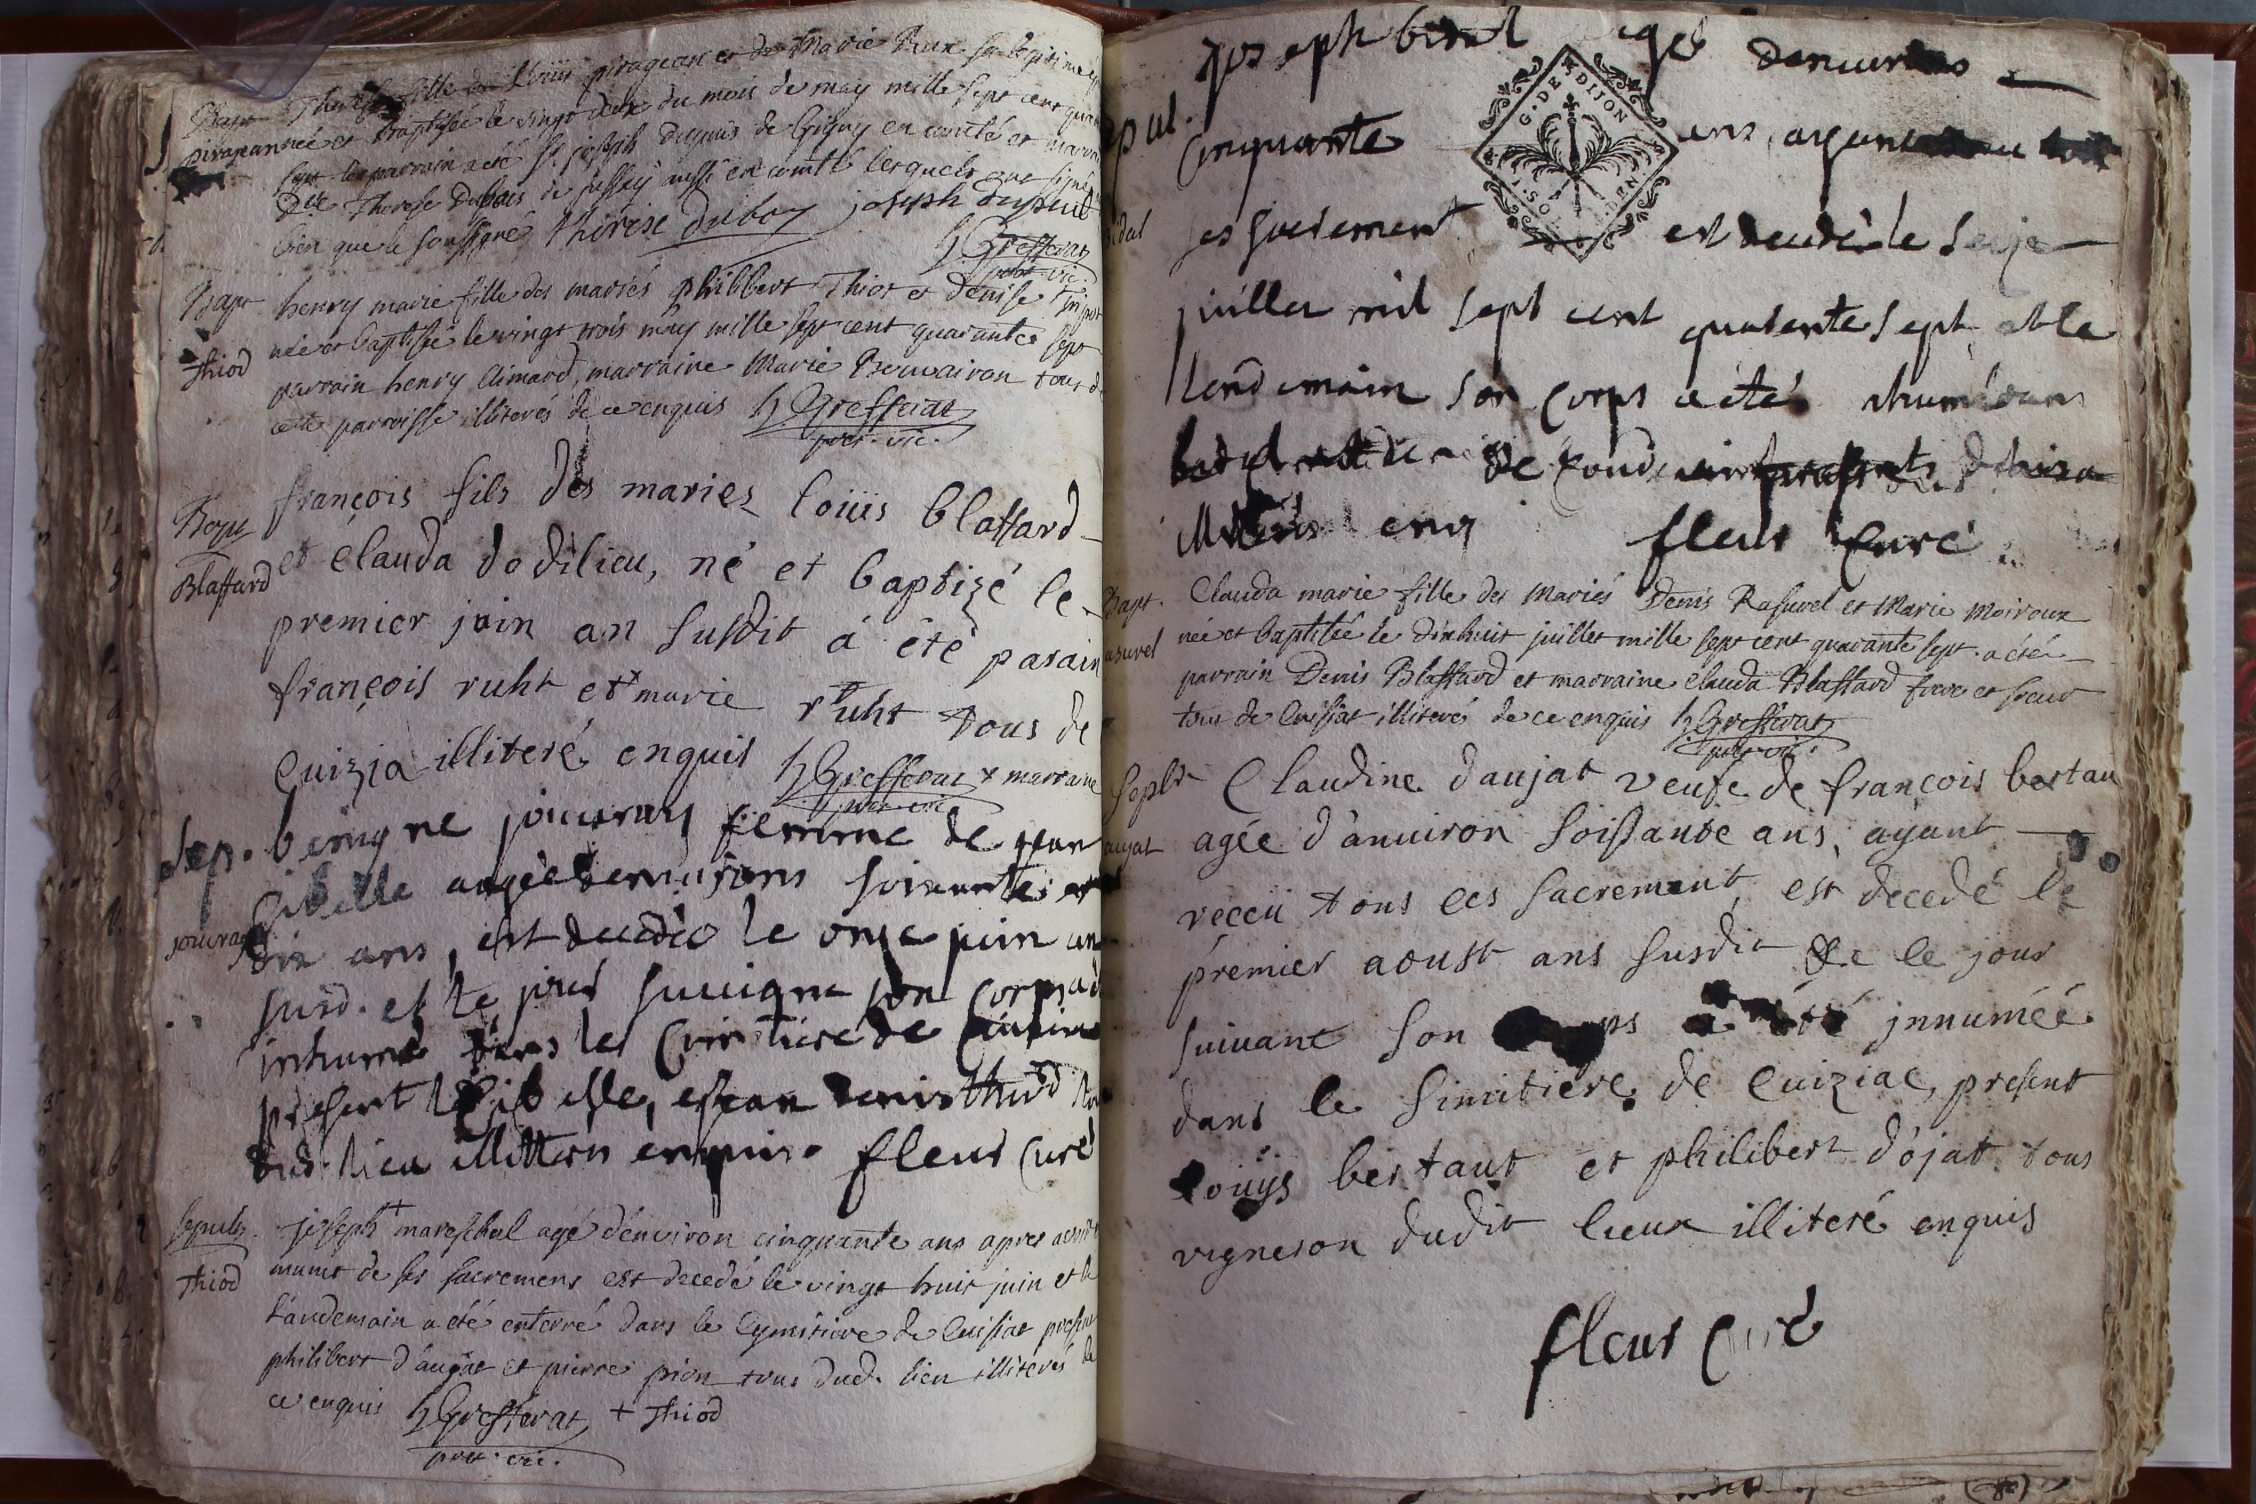 Bapt Therese fille de Loüis piragean et de Marie Rux sa legitime
piragean née et baptisée le vingt deux du mois de may mille sept cent quarante
sept le parrain a été Sr joseph dupuis de Gigny en comté et marraine
Dlle Therese Dubois de jussey aussi en comté lesquels ont signé
bien que le soussigné Thérèse duboy joseph dupuit
h Grefferat
pret. vic.
Bapt henry marie fille des mariés philibbert Thiot et denise
née et baptisée le vingt trois may mille sept cent quarante sept
Thiod parrain henry Aimard, marraine Marie Bouvairon tous de
cette parroisse illiterés de ce enquis h Grefferat
pret. vic.
Bapt françois fils des mariez loüis blaffard
Blaffard et clauda dodilieu, né et baptizé le
premier juin an susdit á été parain
françois ruht et + marie ruht tous de
Cuizia illiteré enquis h Grefferat + marraine
pret vic
Sep. benigne jouvray femme de jean
Cibelle aagée denuirons soixante et
jouvray dix ans, est decedée le onze juin an
susd. et le jour suiuant son corps a été
inhumé dans le Cimitiere de
present Cibelle, et jean denis thiod
dud. lieu illitteres enquis. fleur Curé
Sepult. joseph + mareschal agé d'environ cinquante ans apres
Thiod de ses sacremens est decedé le vingt huit juin et le
landemain a été enterré dans le Cymitiere de Cuisiat present
philibert d'aujat et pierre pion tous dud. lieu illiterés de
ce enquis h Grefferat + Thiod
pret. vic.
joseph bidal agé denuiron
G. DE DIJON
cinquante ans, ayant
ses sacrement est decedé le seize
juillet mil sept cent quarente sept et le
lendemain son corps a été inhumé dans
de
enq fleur Curé
Bapt. Clauda marie fille des Mariés Denis Rasurel et Marie Moiroux
asurel née et baptisée le dixhuit juillet mille sept cent quarante sept. a été
parrain Denis Blaffard et marraine Clauda Blaffard frere et soeur
tous de Cuisiat illiteré de ce enquis h Grefferat
pret. vic.
Sepltr Claudine daujat veufe de françois bertau
aujat agée d'anuiron soissante ans, ayant
reccü tous ces sacrement, est decedé le
prémier aoust ans susdit & le jour
suivant son corps a été jnnuméé
dans le simitiere de Cuiziac, present
louÿs bertaut et philibert d'ojat tous
vigneron dudit lieux illiteré enquis
fleur Curé